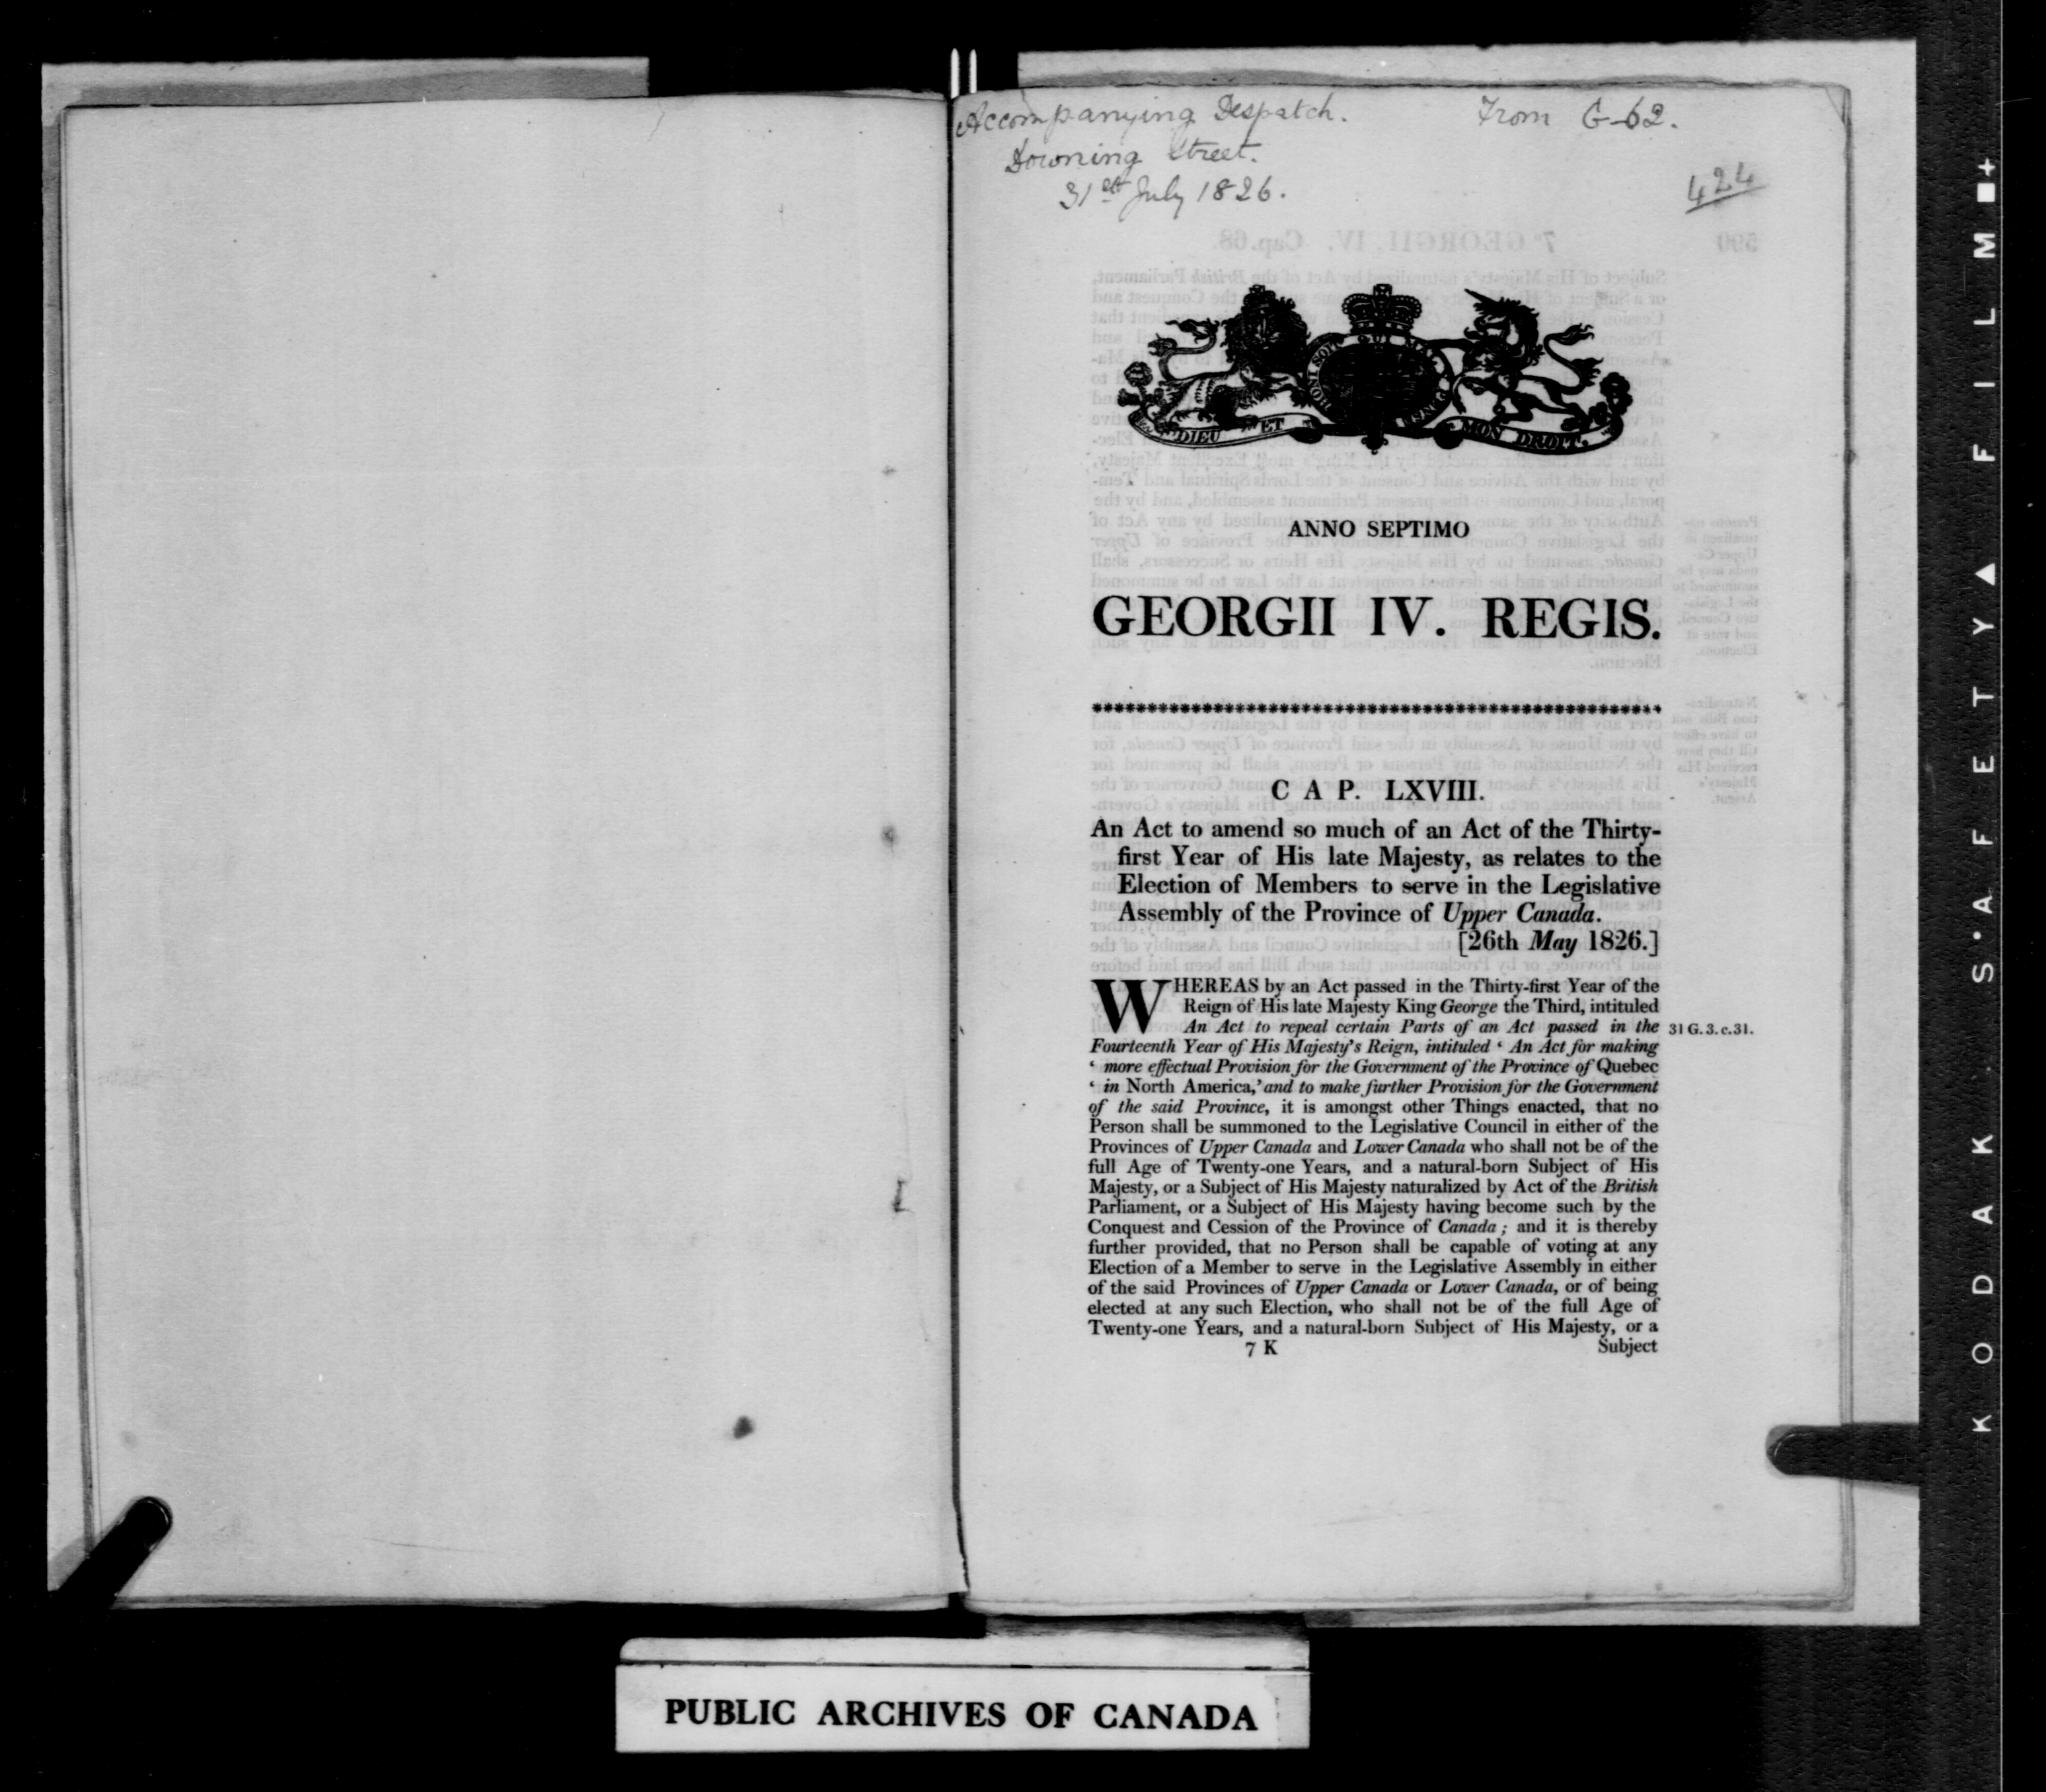 Accompanying Despatch. From G-62.
Downing Street.
31st July 1826.
424
HONI SOIT QUI MAL
DIEU ET MON DROIT.
ANNO SEPTIMO
GEORGII IV. REGIS.
CAP. LXVIII.
An Act to amend so much of an Act of the Thirty-
first Year of His late Majesty, as relates to the
Election of Members to serve in the Legislative
Assembly of the Province of Upper Canada.
[26th May 1826.]
WHEREAS by an Act passed in the Thirty-first Year of the
Reign of His late Majesty King George the Third, intituled
An Act to repeal certain Parts of an Act passed in the 31 G. 3. c. 31.
Fourteenth Year of His Majesty's Reign, intituled ' An Act for making
' more effectual Provision for the Government of the Province of Quebec
' in North America,' and to make further Provision for the Government
of the said Province, it is amongst other Things enacted, that no
Person shall be summoned to the Legislative Council in either of the
Provinces of Upper Canada and Lower Canada who shall not be of the
full Age of Twenty-one Years, and a natural-born Subject of His
Majesty, or a Subject of His Majesty naturalized by Act of the British
Parliament, or a Subject of His Majesty having become such by the
Conquest and Cession of the Province of Canada; and it is thereby
further provided, that no Person shall be capable of voting at any
Election of a Member to serve in the Legislative Assembly in either
of the said Provinces of Upper Canada or Lower Canada, or of being
elected at any such Election, who shall not be of the full Age of
Twenty-one Years, and a natural-born Subject of His Majesty, or a
7 K Subject
PUBLIC ARCHIVES OF CANADA
KODAK S·AFETY▲FILM■+